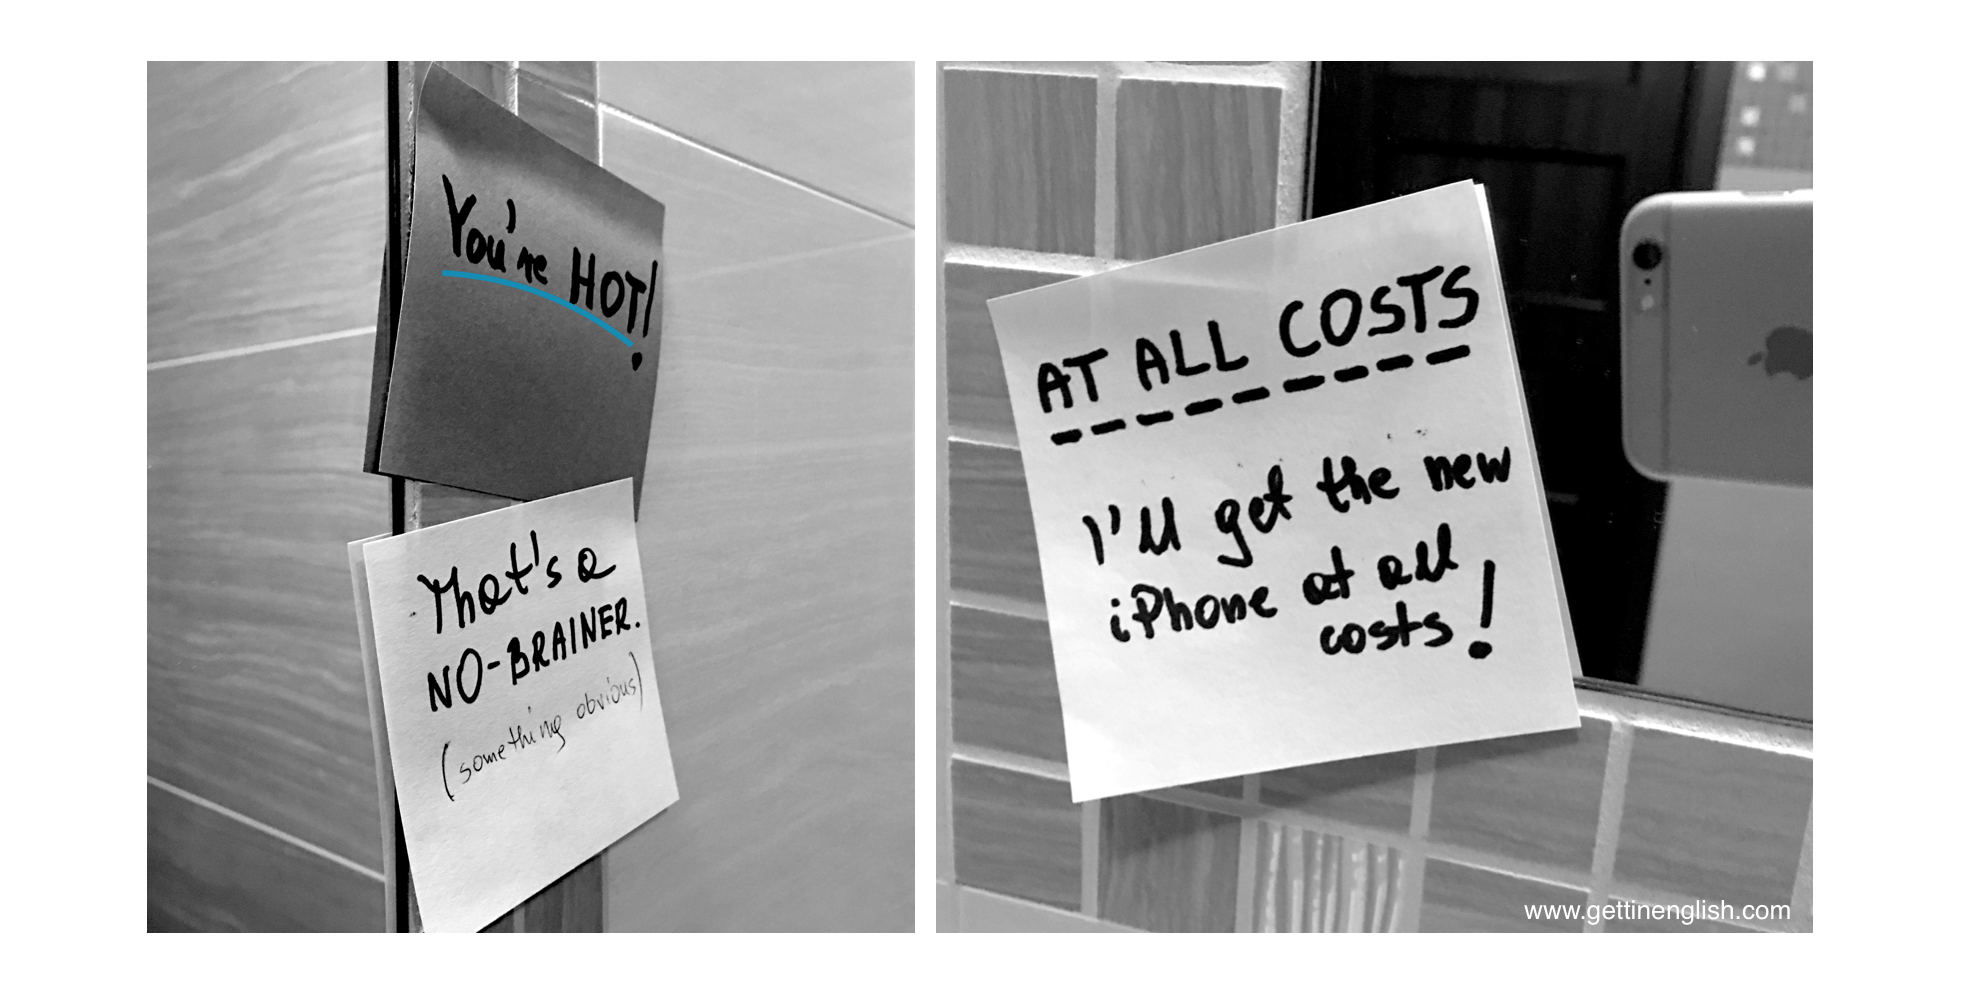 You're HOT!
That's a
NO-BRAINER.
(something obvious)
AT ALL COSTS
I'll get the new
iPhone at all
costs!
www.gettinenglish.com